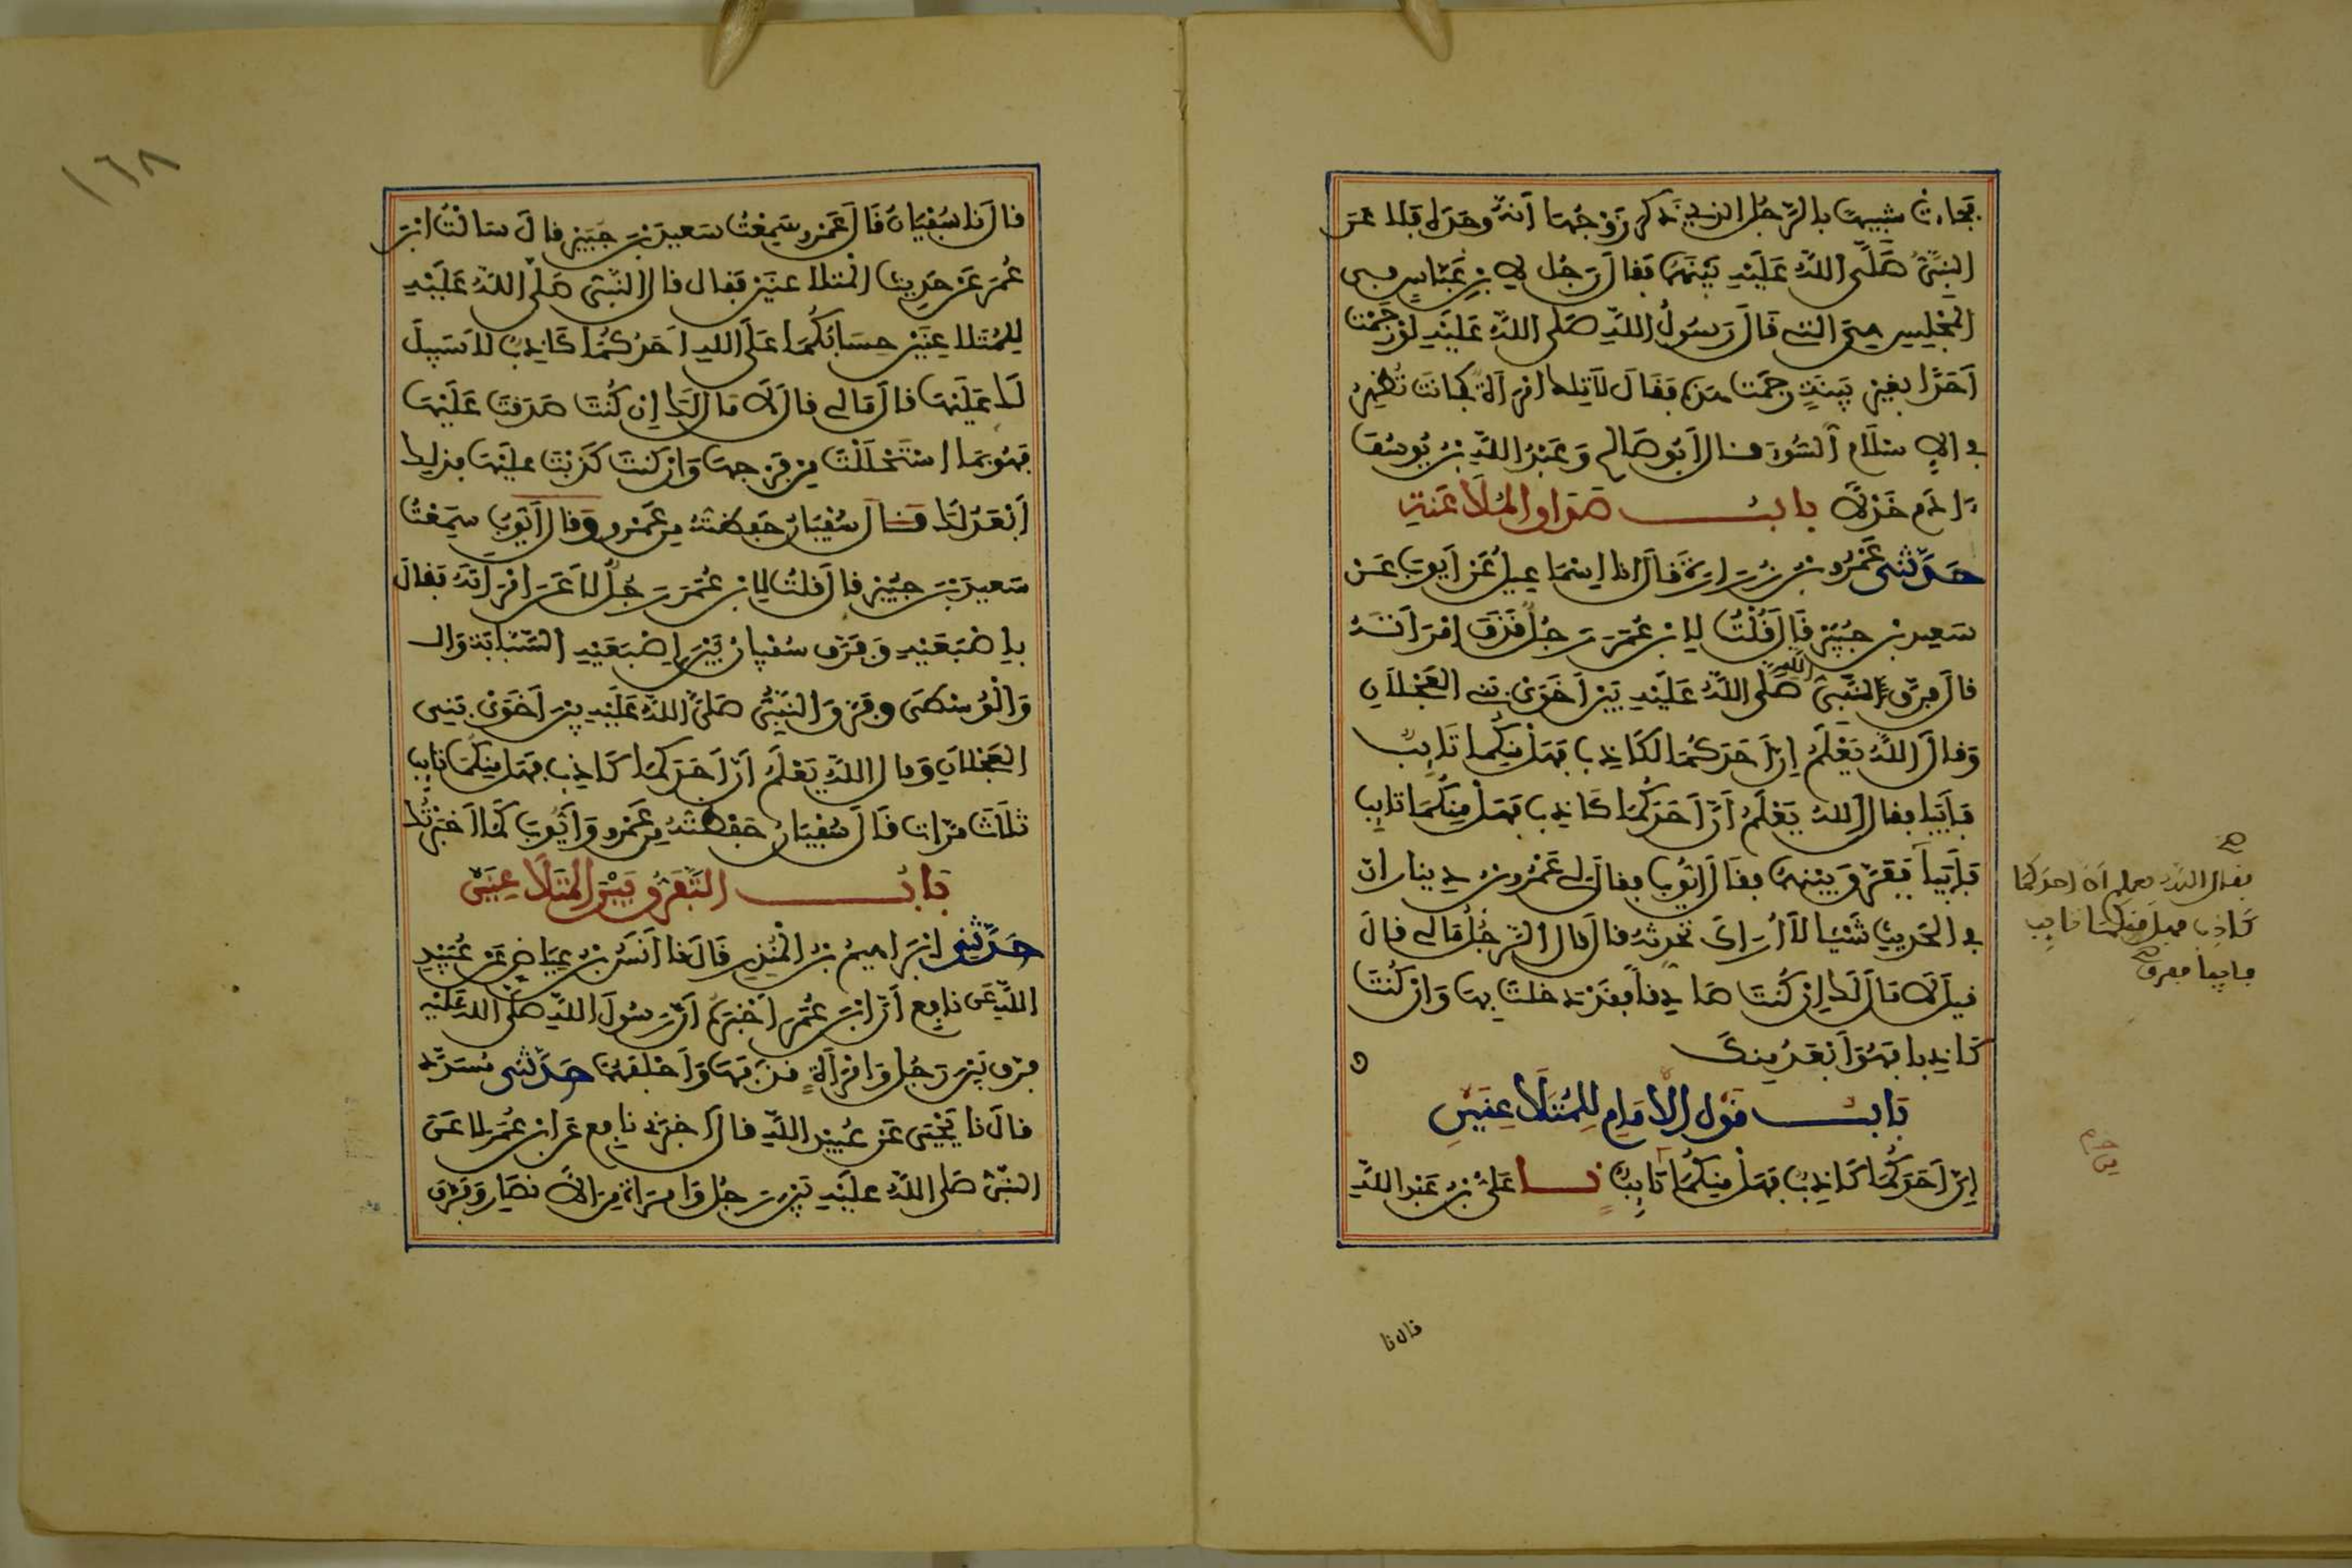 فجاءت شبيها بالرجل الذي ذكر زوجها أنه وجد له فلاعن
النبي صلى الله عليه بينهما فقال رجل لابن عباس في
المجلس هي التي قال رسول الله صلى الله عليه لو رجمت
أحدا بغير بينة رجمت هذه فقال لا تلك امرأة كانت تظهر
في الإسلام السوء قال أبو صالح وعبد الله بن يوسف
آدم خدلا باب صداق الملاعنة
حدثني عمرو بن زرارة قال انا إسماعيل عن أيوب عن
سعيد بن جبير قال قلت لابن عمر رجل قذف امرأته
قال فرق النبي صلى الله عليه بين أخوي بني العجلان
وقال الله يعلم إن أحدكما لكاذب فهل منكما تائب
فأبيا فقال الله يعلم أن أحدكما كاذب فهل منكما تائب
فأبيا ففرق بينهما فقال أيوب فقال لي عمرو بن دينار ان
في الحديث شيئا لا أراك تحدثه قال قال الرجل مالي قال
قيل لا مال لك إن كنت صادقا فقد دخلت بها وإن كنت
كاذبا فهو أبعد منك
باب قول الإمام للمتلاعنين
إن أحدكما كاذب فهل منكما تائب نا علي بن عبد الله
فقال الله يعلم أن أحدكما
كاذب فهل منكما تائب
فأبيا ففرق
قال نا
١٦٨
قال نا سفيان قال عمرو سمعت سعيد بن جبير قال سألت ابن
عمر عن حديث المتلاعنين فقال قال النبي صلى الله عليه
للمتلاعنين حسابكما على الله أحدكما كاذب لا سبيل
لك عليها قال مالي قال لا مال لك إن كنت صدقت عليها
فهو بما استحللت من فرجها وإن كنت كذبت عليها فذلك
أبعد لك قال سفيان حفظته من عمرو وقال أيوب سمعت
سعيد بن جبير قال قلت لابن عمر رجل لاعن امرأته فقال
بإصبعيه وفرق سفيان بين إصبعيه السبابة وال
والوسطى وفرق النبي صلى الله عليه بين أخوي بني
العجلان وقال الله يعلم أن أحدكما كاذب فهل منكما تائب
ثلاث مرات قال سفيان حفظته من عمرو وأيوب كما أخبرتك
باب التفريق بين المتلاعنين
حدثني إبراهيم بن المنذر قال نا أنس بن عياض عن عبيد
الله عن نافع أن ابن عمر أخبره أن رسول الله صلى الله عليه
فرق بين رجل وامرأة قذفها وأحلفهما حدثني مسدد
قال نا يحيى عن عبيد الله قال أخبرني نافع عن ابن عمر لاعن
النبي صلى الله عليه بين رجل وامرأة من الأنصار وفرق